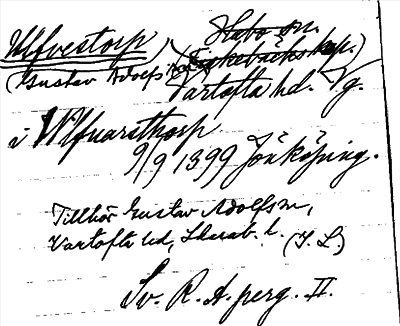 Ulfvestorp Habo sn.
(Gustav Adolfs sn) (Fiskebäcks kap.)
Vartofta hd. Vg.
i Wlfuarsthorp
9/9 1399 Jönköping.
Tillhör Gustav Adolfs sn,
Vartofta hd, Skarab. l. (J. L.)
Sv. R. A. perg. II.